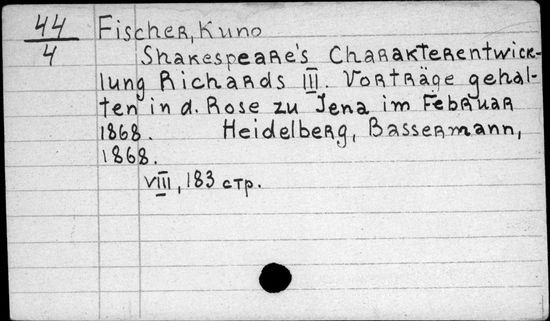 44
4
Fischer, Kuno
Shakespeare's Charakterentwick-
lung Richards III. Vorträge gehal-
ten in d. Rose zu Jena im Februar
1868. Heidelberg, Bassermann,
1868.
VIII, 183 стр.